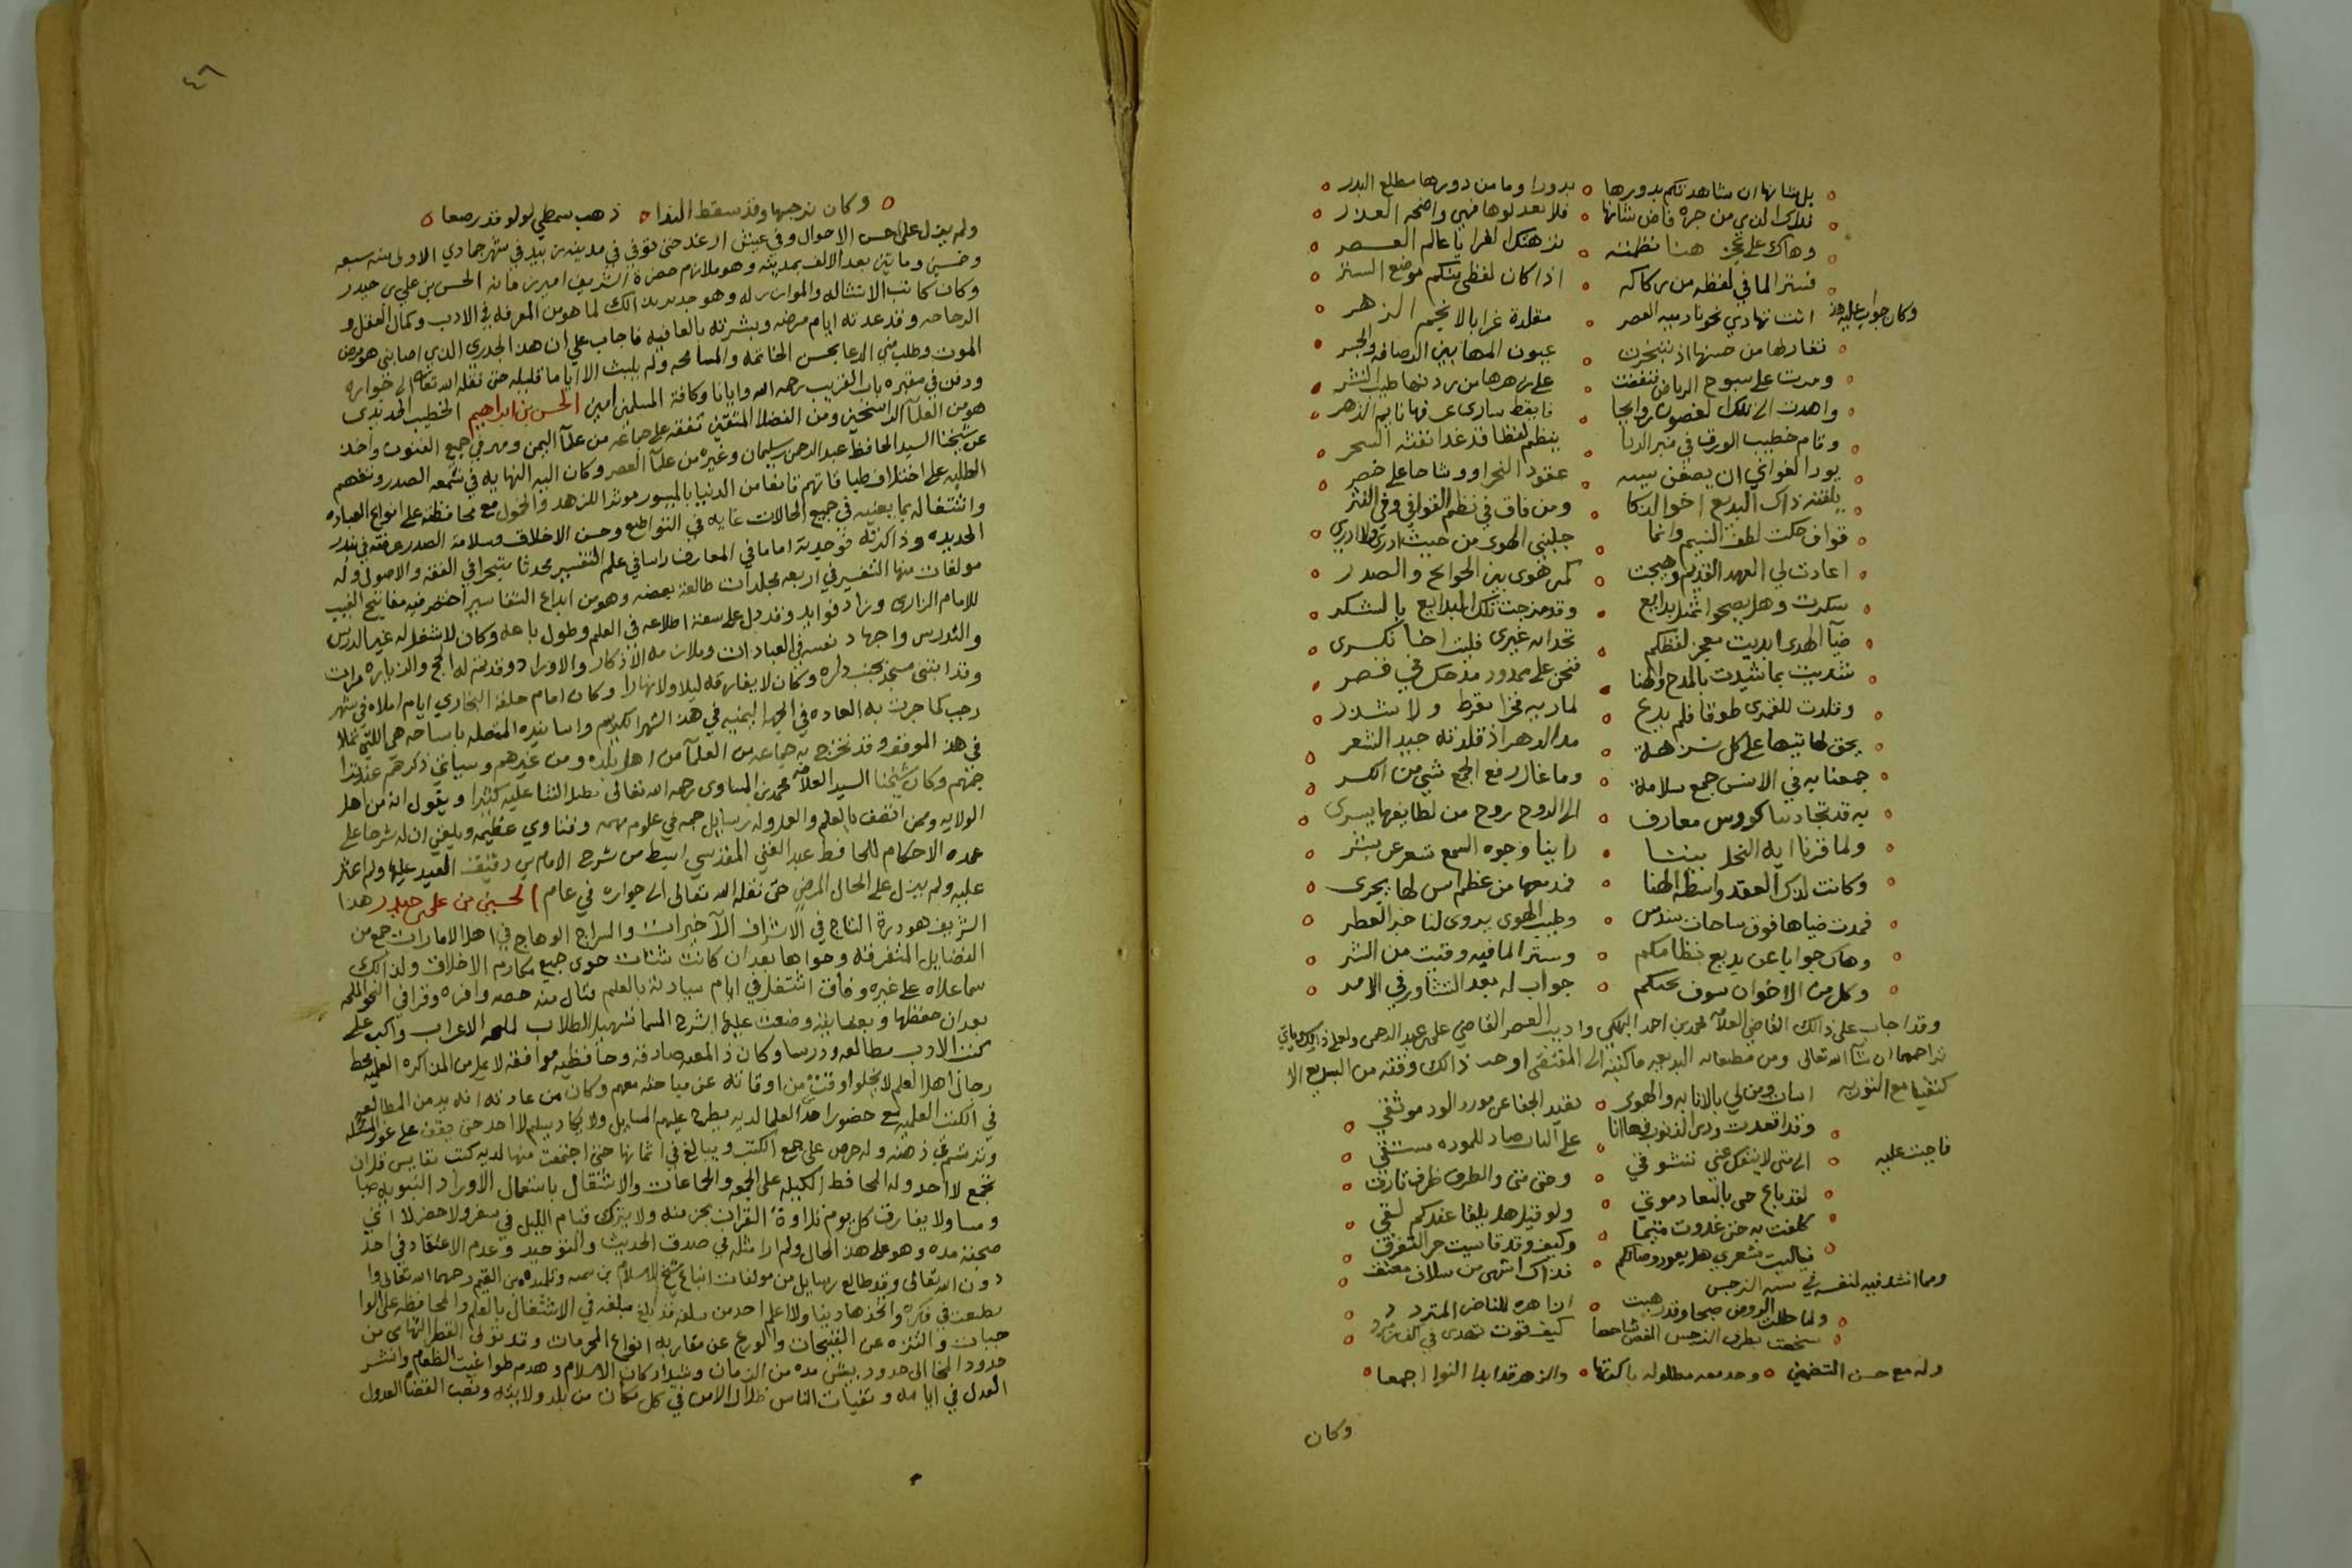 بل شانها ان شاهدتكم بدورها ٥ بدورا وما من دورها مطلع البدر
فلا تعدلوها فهي واضحه العذر
وهاك على عجز هنا نظمته ٥ نزهتك الغرا يا عالم العصر
فستر الما في لفظه من ركاكه ٥ اذا كان لفظي منكم موضع الستر
وكان جوابي عليه هذا
اتت تهادي نحونا ربيه العصر ٥ مقلدة غرا بالانجم الزهر
تغار لها من حسنها اذ تبخترت ٥ عيون المها بين الرصافه والجسر
ومرت على سوح الرياض ٥ على زهرها من ردنها طيب النشر
وقام خطيب الورق في منبر الربا ٥ ينظم لفظا قد غدا نفثه السحر
يود الغواني ان يصغن ٥ عقود النحر او وشاحا على خصر
بلغته ذاك البديع اخو الذكا ٥ ومن فاق في نظم القوافي وفي النثر
قواف حكت لطف النسيم وانما ٥ جلبن الهوى من حيث ادري ولا ادري
اعادت لي العهد القديم وهيجت ٥ كمين هوى بين الجوانح والصدر
سكرت وهل يصحوا ثمل بدايع ٥ وقد مزجت تلك البدايع بالسكر
ضيآ الهدى ابديت معجز لفظكم ٥ تحدا به غيري فلبت اخا فكرى
شديت بما شيدت بالمدح والهنا ٥ فنحن على ممدود مدحك في قصر
وقلدت للقمري طوقا فلم يدع ٥ لمارية فخرا بقرط ولا شذر
يحق لها تيها على كل ٥ مدا الدهر اذ قلدته جيد الشعر
جمعنا به في الانس جمع سلامة ٥ وما غال رفع الجمع شي من الكسر
به قد تجاذبنا كووس معارف ٥ الى الروح روح من لطايفها يسرى
ولما قرنا ايه النحل بيننا ٥ راينا وجوه السمع تسعر عن بشر
وكانت لذاك العقد واسطه الهنا
فمدت ضياها فوق ساحات سندس ٥ وطيب الهوى يروى لنا خبر العطر
وهاك جوابا عن بديع نظامكم ٥ وستر الما فيه وقيت من الشر
وكل من الاخوان سوف ٥ جواب له بعد التشاور في الامر
وقد اجاب على ذالك القاضي العلامه محمد بن احمد البهكلي واديب العصر القاضي علي بن عبد الرحمن ولعل ذالك ياتي
تراجمهما ان شآ الله تعالى ومن مطبعاته البديعيه ما كتبته الى المقتفى
وقد اقعدت ودى الذنوب فها انا
فاجبت عليه
لقد باع حى بالبعاد موثقي ٥ ولو قيل هل يلقا عندكم لقي
كلفت به حتى غدوت متيما ٥ وكيف وقد قاسيت حر التفرق
فياليت شعري هل يعود وصالكم
ومما انشد فيه لنفسه في النرجس
ولما حللت الروض صبحا وقد هبت
وله مع حسن التضمين ٥ والزهر قد ابدا النوا اجمعا
وكان

٤٦
وكان نرجسها وقد سقط الندا ٥ ذهب سمطي لولو قد رصعا
ولم يزل على احسن الاحوال وفي عيش ارغد حتى توفي في مدينه زبيد في شهر جمادي الاولى سنه سبعه
وخمسين ومايتين بعد الالف بمدينه وهو ملازم حضرة الشريف امير زمانه الحسين بن علي بن حيدر
وكان كاتب الانشاله والموازر له وهو جدير بذالك لما هو من المعرفه في الادب وكمال العقل و
الرجاحه وقد عدته ايام مرضه وبشرته بالعافيه فاجاب علي ان هذا الجدري الذي اصابني هو مرض
الموت وطلب مني الدعا بحسن الخاتمه والمسامحه ولم يلبث الا اياما قليله حتى نقله الله تعالى الى جواره
ودفن في مقبره باب القريب رحمه الله وايانا وكافة المسلمين امين الحسن بن ابراهيم الخطيب الحديدي
هو من العلمآ الراسخين ومن الفضلا المتقين تفقه على جماعه من علمآ اليمن ومهر في جميع الفنون واخذ
عن شيخنا السيد الحافظ عبد الرحمن بن سليمان وغيره من علمآ العصر وكان اليه النهايه في سعه الصدر ونفعهم
الطلبه على اختلاف طبقاتهم قانعا من الدنيا بالميسور موثرا للزهد والخمول مع محافظته على انواع العباده
واشتغاله بما يعنيه في جميع الحالات غايه في التواضع وحسن الاخلاق وسلامة الصدر عرفته في بندر
الحديده وذاكرته فوجدته اماما في المعارف راسا في علم التفسير محدثا متبحرا في الفقه والاصول وله
مولفات منها التفسير في اربعه مجلدات طالعت بعضه وهو من ابدع التفاسير اختصر فيه مفاتيح الغيب
للامام الرازى وزاد فوايد وقد دل على سعة اطلاعه في العلم وطول باعه وكان لا شغل له غير الدرس
والتدريس واجهاد نفسه في العبادات وملازمه الاذكار والاوراد وقد تم له الحج والزياره مرات
وقد ابتنى مسجد بجنب داره وكان لا يفارقه ليلا ولا نهارا وكان امام حلقة البخاري ايام املاه في شهر
رجب كما جرت به العاده في الجهه اليمنيه في هذا الشهر الكريم واسانيده المتصله
في هذا الموقف وقد تخرج به جماعه من العلمآ من اهل بلده ومن غيرهم وسياتي ذكرهم عند
منهم وكان شيخنا السيد العلامه محمد بن المساوى رحمه الله تعالى يطيل الثنا عليه كثيرا ويقول انه من اهل
الولايه وممن اتصف بالعلم والعمل وله رسايل جمه في علوم مهمه وفتاوي عظيمه وبلغني ان له شرحا على
عمده الاحكام للحافظ عبد الغني المقدسي ابسط من شرح الامام بن دقيق العيد عليها ولم اعثر
عليه ولم يزل على الحال المرضي حتى نقله الله تعالى الى جواره في عام الحسين بن علي بن حيدر هذا
الشريف هو درة التاج في الاشراف الآخيرات والسراج الوهاج في اهل الامارات جمع من
الفضايل المتفرقه وحواها بعد ان كانت شتات حوى جميع مكارم الاخلاق ولذالك
سما علاه على غيره وفاق اشتغل في ايام سيادته بالعلم فنال منه حصه وافره وقرا في النحو الملحه
بعد ان حفظها وبعنايته وضعت عليها الشرح المسما تسهيل الطلاب لملحه الاعراب واكب على
كتب الادب مطالعه ودرسا وكان ذ المعيه صادقه وحافظيه موافقه لا يمل من المذاكره العلميه محط
رحال اهل العلم لا يخلوا وقت من اوقاته عن مباحثه معهم وكان من عادته انه يديم المطالعه
في الكتب العلميه مع حضور احد العلما لديه يطرح عليهم المسايل ولا يكاد يسلم لاحد حتى يقف على غور المسئله
وترتسم في ذهنه وله حرص على جمع الكتب ويبالغ في اثمانها حتى اجتمعت منها لديه كتب نفايس قل ان
تجمع لاحد وله المحافظ الكليه على الجمعه والجماعات والاشتغال باستعمال الاوراد النبويه صباحا
ومسا ولا يفارق كل يوم تلاوة القران بحزبه ولا يترك قيام الليل في سفر ولا حضر لانني
صحبته مده وهو على هذا الحال ولم ار مثله في صدق الحديث والتوحيد وعدم الاعتقاد في احد
دون الله تعالى وقد طالع رسايل من مولفات شيخ الاسلام بن تيميه وتلميذه بن القيم رحمهما الله تعالى وا
نطبعت في فكره واتخذها دينا ولا اعلم احد من سلفه قد بلغ مبلغه في الاشتغال بالعلم والمحافظه على الوا
جبات والتنزه عن القبيحات والورع عن مقاربه انواع المحرمات وقد تولى القطر التهامى من
حدود المخا الى حدود بيش مده من الزمان وشد اركان الاسلام وهدم طواغيت الطغام وانتشر
العدل في ايامه وتفيات الناس ظلال الامن في كل مكان من بلد ولايته ونصب القضاه العدول